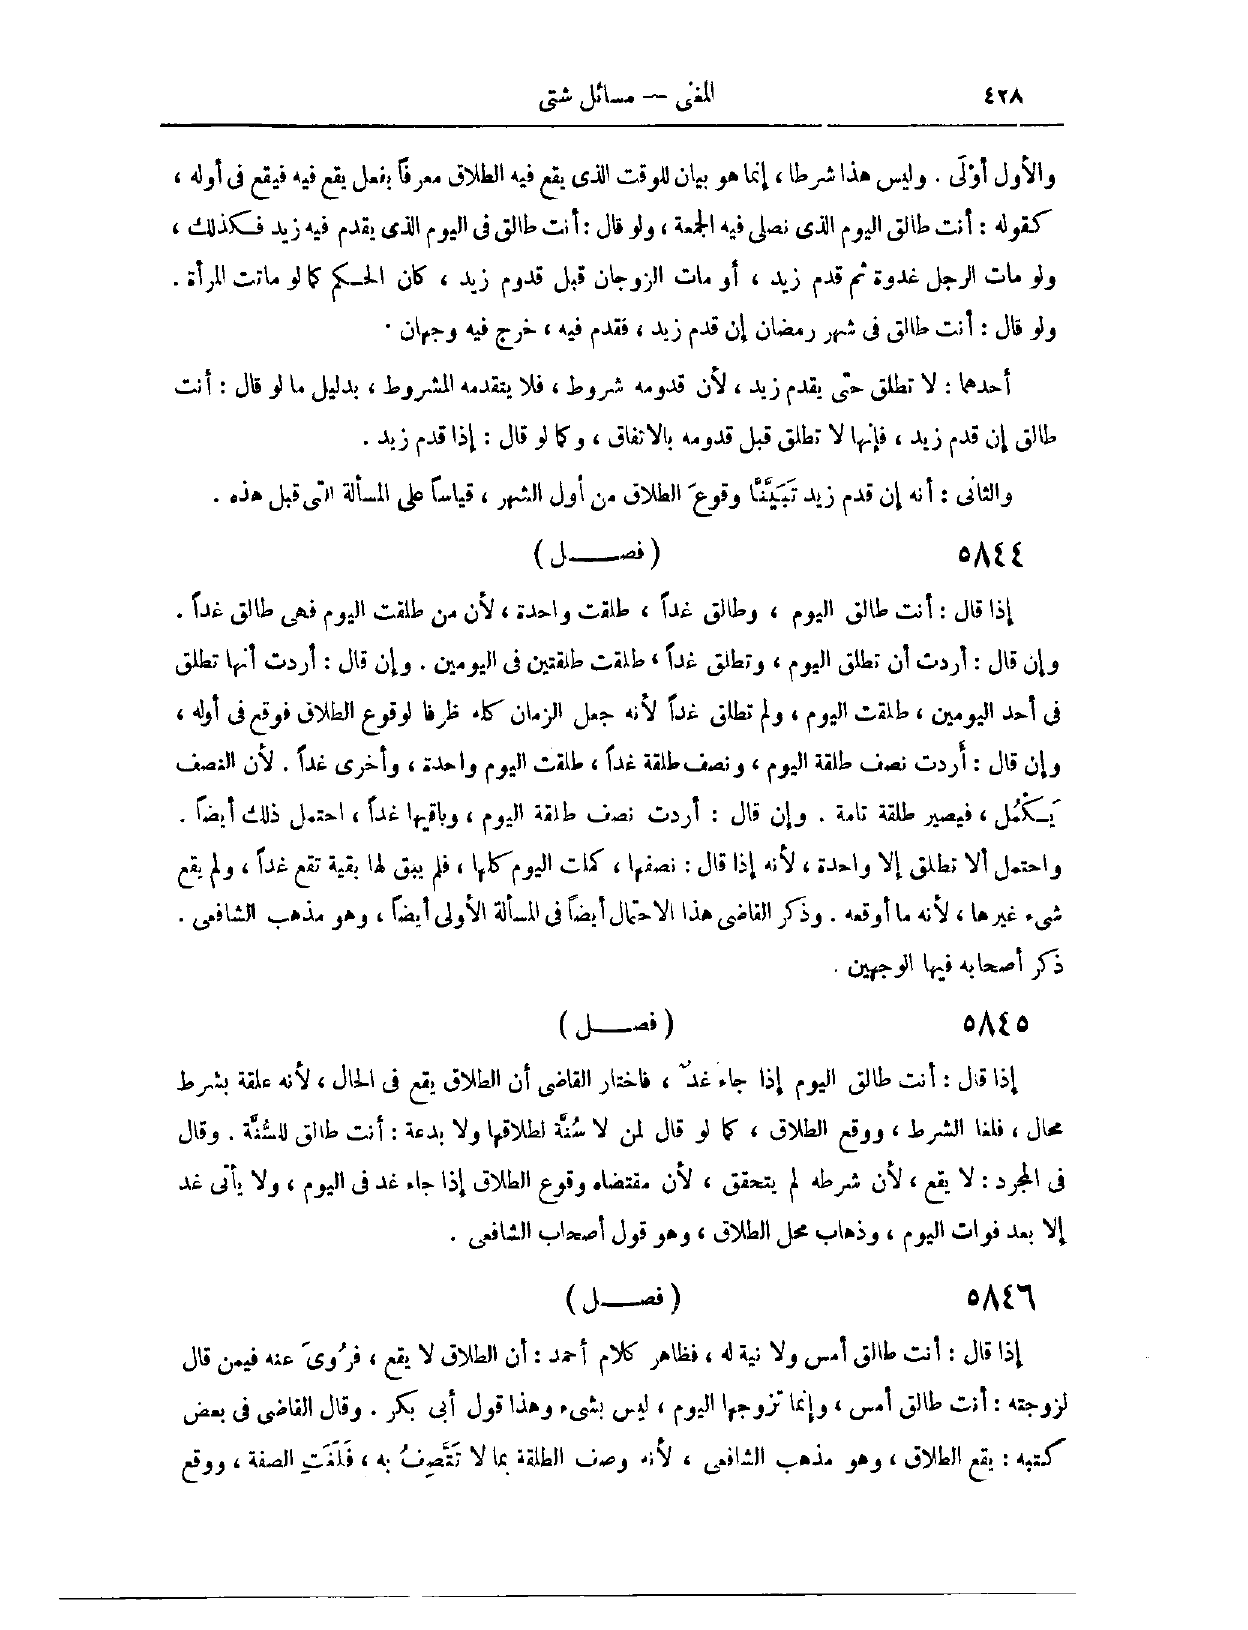 ٤٢٨
المغنى — مسائل شتى
والأول أوْلَى . وليس هذا شرطا ، إنما هو بيان للوقت الذى يقع فيه الطلاق معرفاً بفعل يقع فيه فيقع فى أوله ،
كقوله : أنت طالق اليوم الذى نصلى فيه الجمعة ، ولو قال : أنت طالق فى اليوم الذى يقدم فيه زيد فكذلك ،
ولو مات الرجل غدوة ثم قدم زيد ، أو مات الزوجان قبل قدوم زيد ، كان الحكم كما لو ماتت المرأة .
ولو قال : أنت طالق فى شهر رمضان إن قدم زيد ، فقدم فيه ، خرج فيه وجهان .
أحدها : لا تطلق حتى يقدم زيد ، لأن قدومه شروط ، فلا يتقدمه المشروط ، بدليل ما لو قال : أنت
طالق إن قدم زيد ، فإنها لا تطلق قبل قدومه بالاتفاق ، وكما لو قال : إذا قدم زيد .
والثانى : أنه إن قدم زيد تَبَيَّنَّا وقوعَ الطلاق من أول الشهر ، قياساً على المسألة التى قبل هذه .
٥٨٤٤
( فصـــل )
إذا قال : أنت طالق اليوم ، وطالق غداً ، طلقت واحدة ، لأن من طلقت اليوم فهى طالق غداً .
وإن قال : أردت أن تطلق اليوم ، وتطلق غداً ، طلقت طلقتين فى اليومين . وإن قال : أردت أنها تطلق
فى أحد اليومين ، طلقت اليوم ، ولم تطلق غداً لأنه جعل الزمان كله ظرفا لوقوع الطلاق فوقع فى أوله ،
وإن قال : أردت نصف طلقة اليوم ، ونصف طلقة غداً ، طلقت اليوم واحدة ، وأخرى غداً . لأن النصف
يَكْمُل ، فيصير طلقة تامة . وإن قال : أردت نصف طلقة اليوم ، وباقيها غداً ، احتمل ذلك أيضاً .
واحتمل ألا تطلق إلا واحدة ، لأنه إذا قال : نصفها ، كملت اليوم كلها ، فلم يبق لها بقية تقع غداً ، ولم يقع
شىء غيرها ، لأنه ما أوقعه . وذكر القاضى هذا الاحتمال أيضاً فى المسألة الأولى أيضاً ، وهو مذهب الشافعى .
ذكر أصحابه فيها الوجهين .
٥٨٤٥
( فصـــل )
إذا قال : أنت طالق اليوم إذا جاء غدٌ ، فاختار القاضى أن الطلاق يقع فى الحال ، لأنه علقة بشرط
محال ، فلغا الشرط ، ووقع الطلاق ، كما لو قال لمن لا سُنَّة لطلاقها ولا بدعة : أنت طالق للسُّنَّة . وقال
فى المجرد : لا يقع ، لأن شرطه لم يتحقق ، لأن مقتضاه وقوع الطلاق إذا جاء غد فى اليوم ، ولا يأتى غد
إلا بعد فوات اليوم ، وذهاب محل الطلاق ، وهو قول أصحاب الشافعى .
٥٨٤٦
( فصـــل )
إذا قال : أنت طالق أمس ولا نية له ، فظاهر كلام أحمد : أن الطلاق لا يقع ، فرُوىَ عنه فيمن قال
لزوجته : أنت طالق أمس ، وإنما تزوجها اليوم ، ليس بشىء وهذا قول أبى بكر . وقال القاضى فى بعض
كتبه : يقع الطلاق ، وهو مذهب الشافعى ، لأنه وصف الطلقة بما لا تَتَّصِفُ به ، فَلَغَتِ الصفة ، ووقع